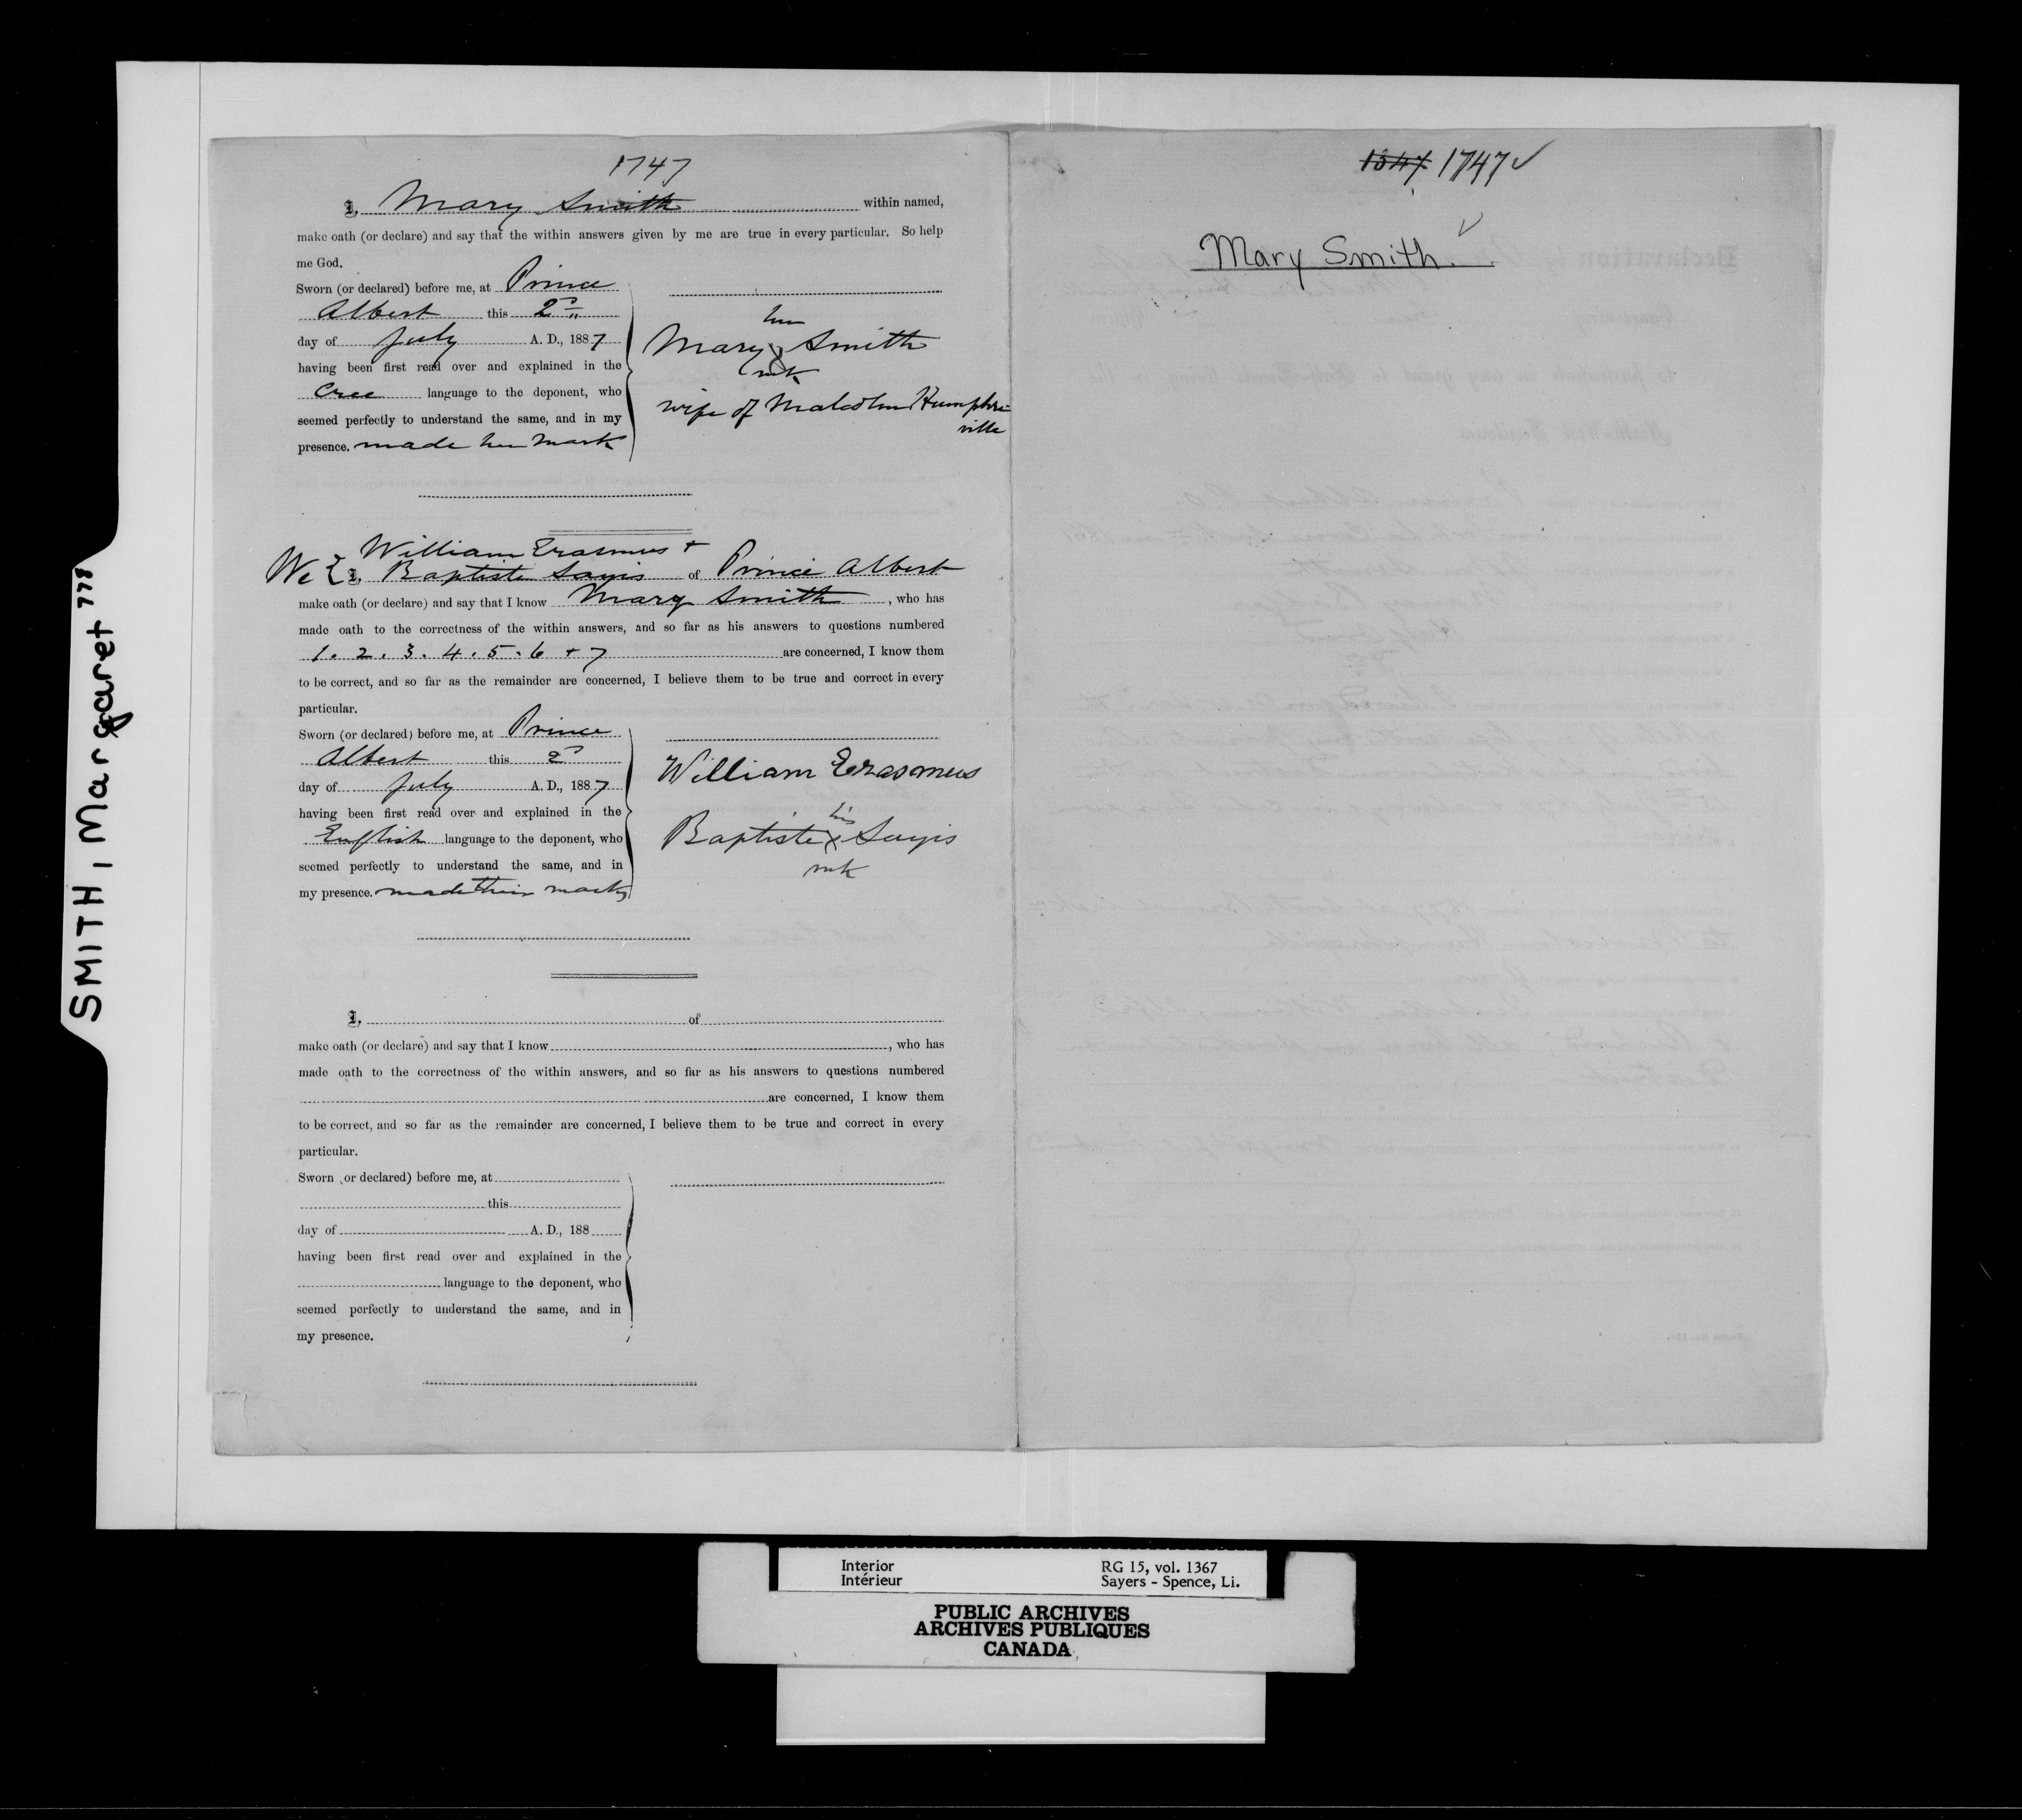 1747
I, Mary Smith within named,
make oath (or declare) and say that the within answers given by me are true in every particular. So help
me God.
Sworn (or declared) before me, at Prince
Albert this 2nd
day of July A. D., 1887
having been first read over and explained in the
Cree language to the deponent, who
seemed perfectly to understand the same, and in my
presence. made her mark
her
Mary X Smith
mk
wife of Malcolm Humphre
ville
William Erasmus +
We I, Baptiste Sayis of Prince Albert
make oath (or declare) and say that I know Mary Smith, who has
made oath to the correctness of the within answers, and so far as his answers to questions numbered
1. 2. 3. 4. 5. 6 + 7 are concerned, I know them
to be correct, and so far as the remainder are concerned, I believe them to be true and correct in every
particular.
Sworn (or declared) before me, at Prince
Albert this 2d
day of July A. D., 1887
having been first read over and explained in the
English language to the deponent, who
seemed perfectly to understand the same, and in
my presence. made their marks
William Erasmus
his
Baptiste X Sayis
mk
I, of
make oath (or declare) and say that I know , who has
made oath to the correctness of the within answers, and so far as his answers to questions numbered
are concerned, I know them
to be correct, and so far as the remainder are concerned, I believe them to be true and correct in every
particular.
Sworn (or declared) before me, at
this
day of A. D., 188
having been first read over and explained in the
language to the deponent, who
seemed perfectly to understand the same, and in
my presence.
1747 ✓
Mary Smith.
SMITH, Margaret "'
Interior
Intérieur
RG 15, vol. 1367
Sayers - Spence, Li.
PUBLIC ARCHIVES
ARCHIVES PUBLIQUES
CANADA